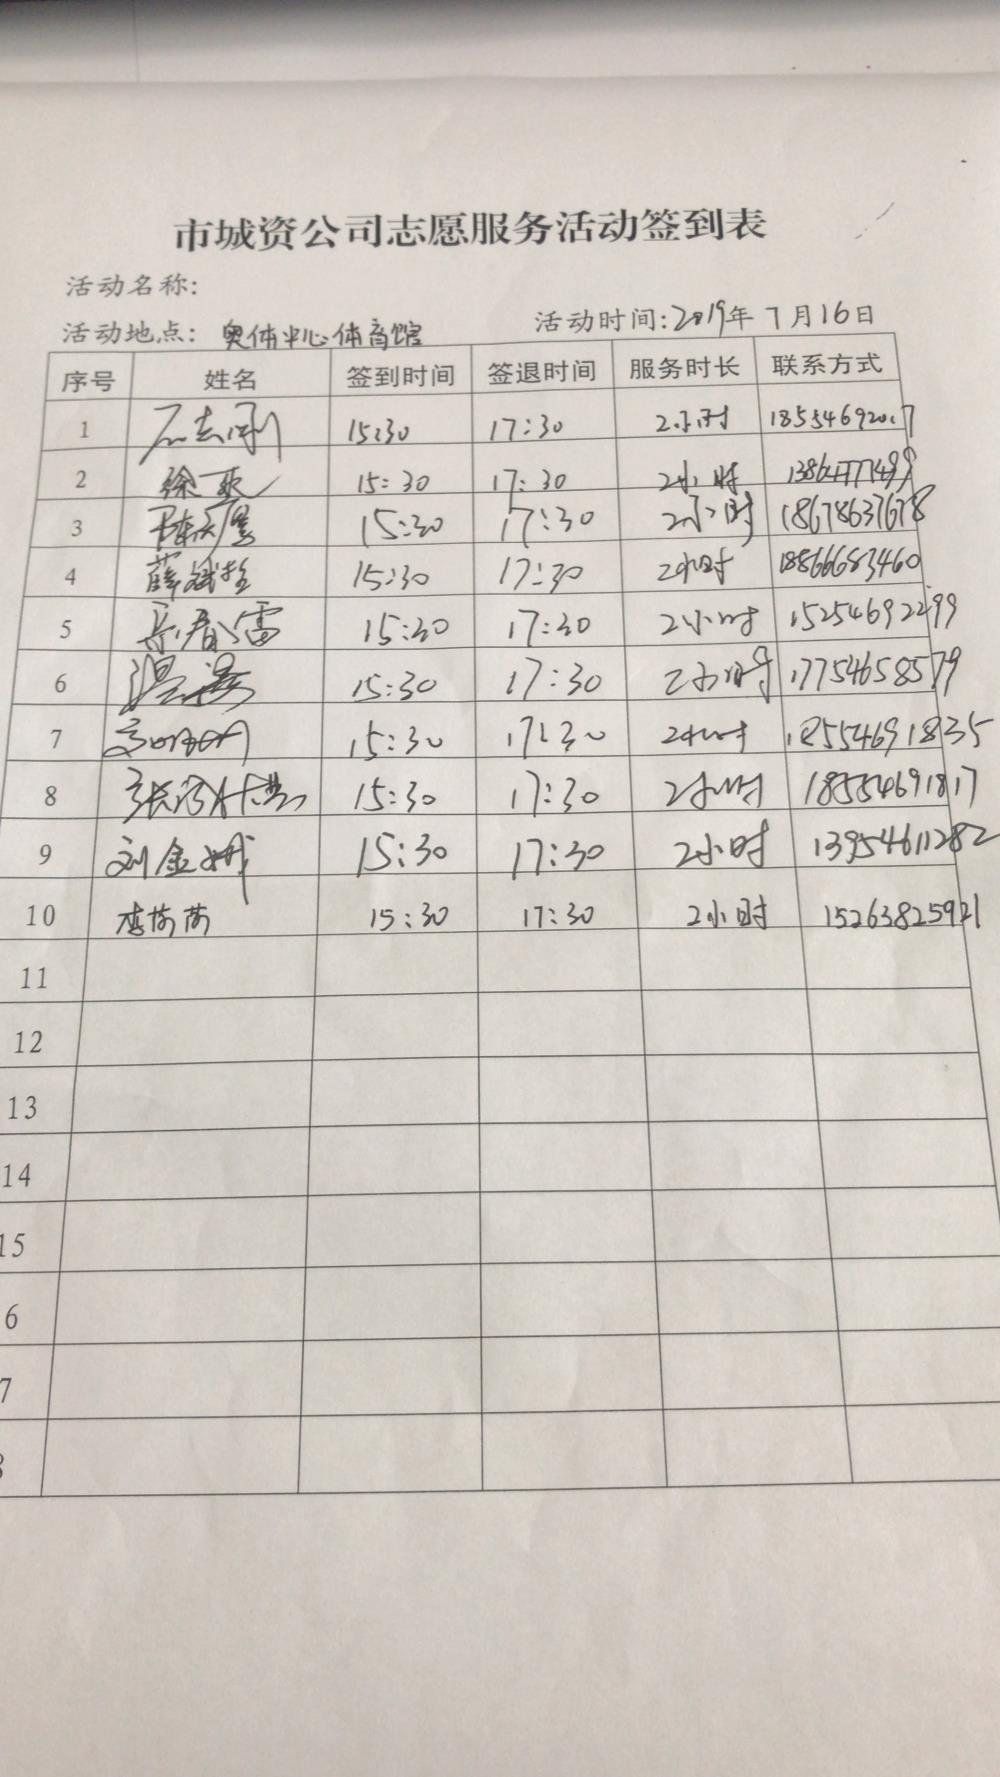 市城资公司志愿服务活动签到表
活动名称:
活动地点: 奥体中心体育馆 活动时间:2019年7月16日
序号 姓名 签到时间 签退时间 服务时长 联系方式
1 15:30 17:30 2小时
2 徐 15:30 17:30 2小时
3 陈 15:30 17:30 2小时 18678637678
4 薛斌 15:30 17:30 2小时 18866683460
5 春雷 15:30 17:30 2小时 15254692299
6 温 15:30 17:30 2小时 17754658579
7 15:30 17:30 2小时 18554691835
8 张 15:30 17:30 2小时 18554691817
9 刘金娥 15:30 17:30 2小时 13954611282
10 李荷荷 15:30 17:30 2小时 15263825921
11
12
13
14
15
6
7